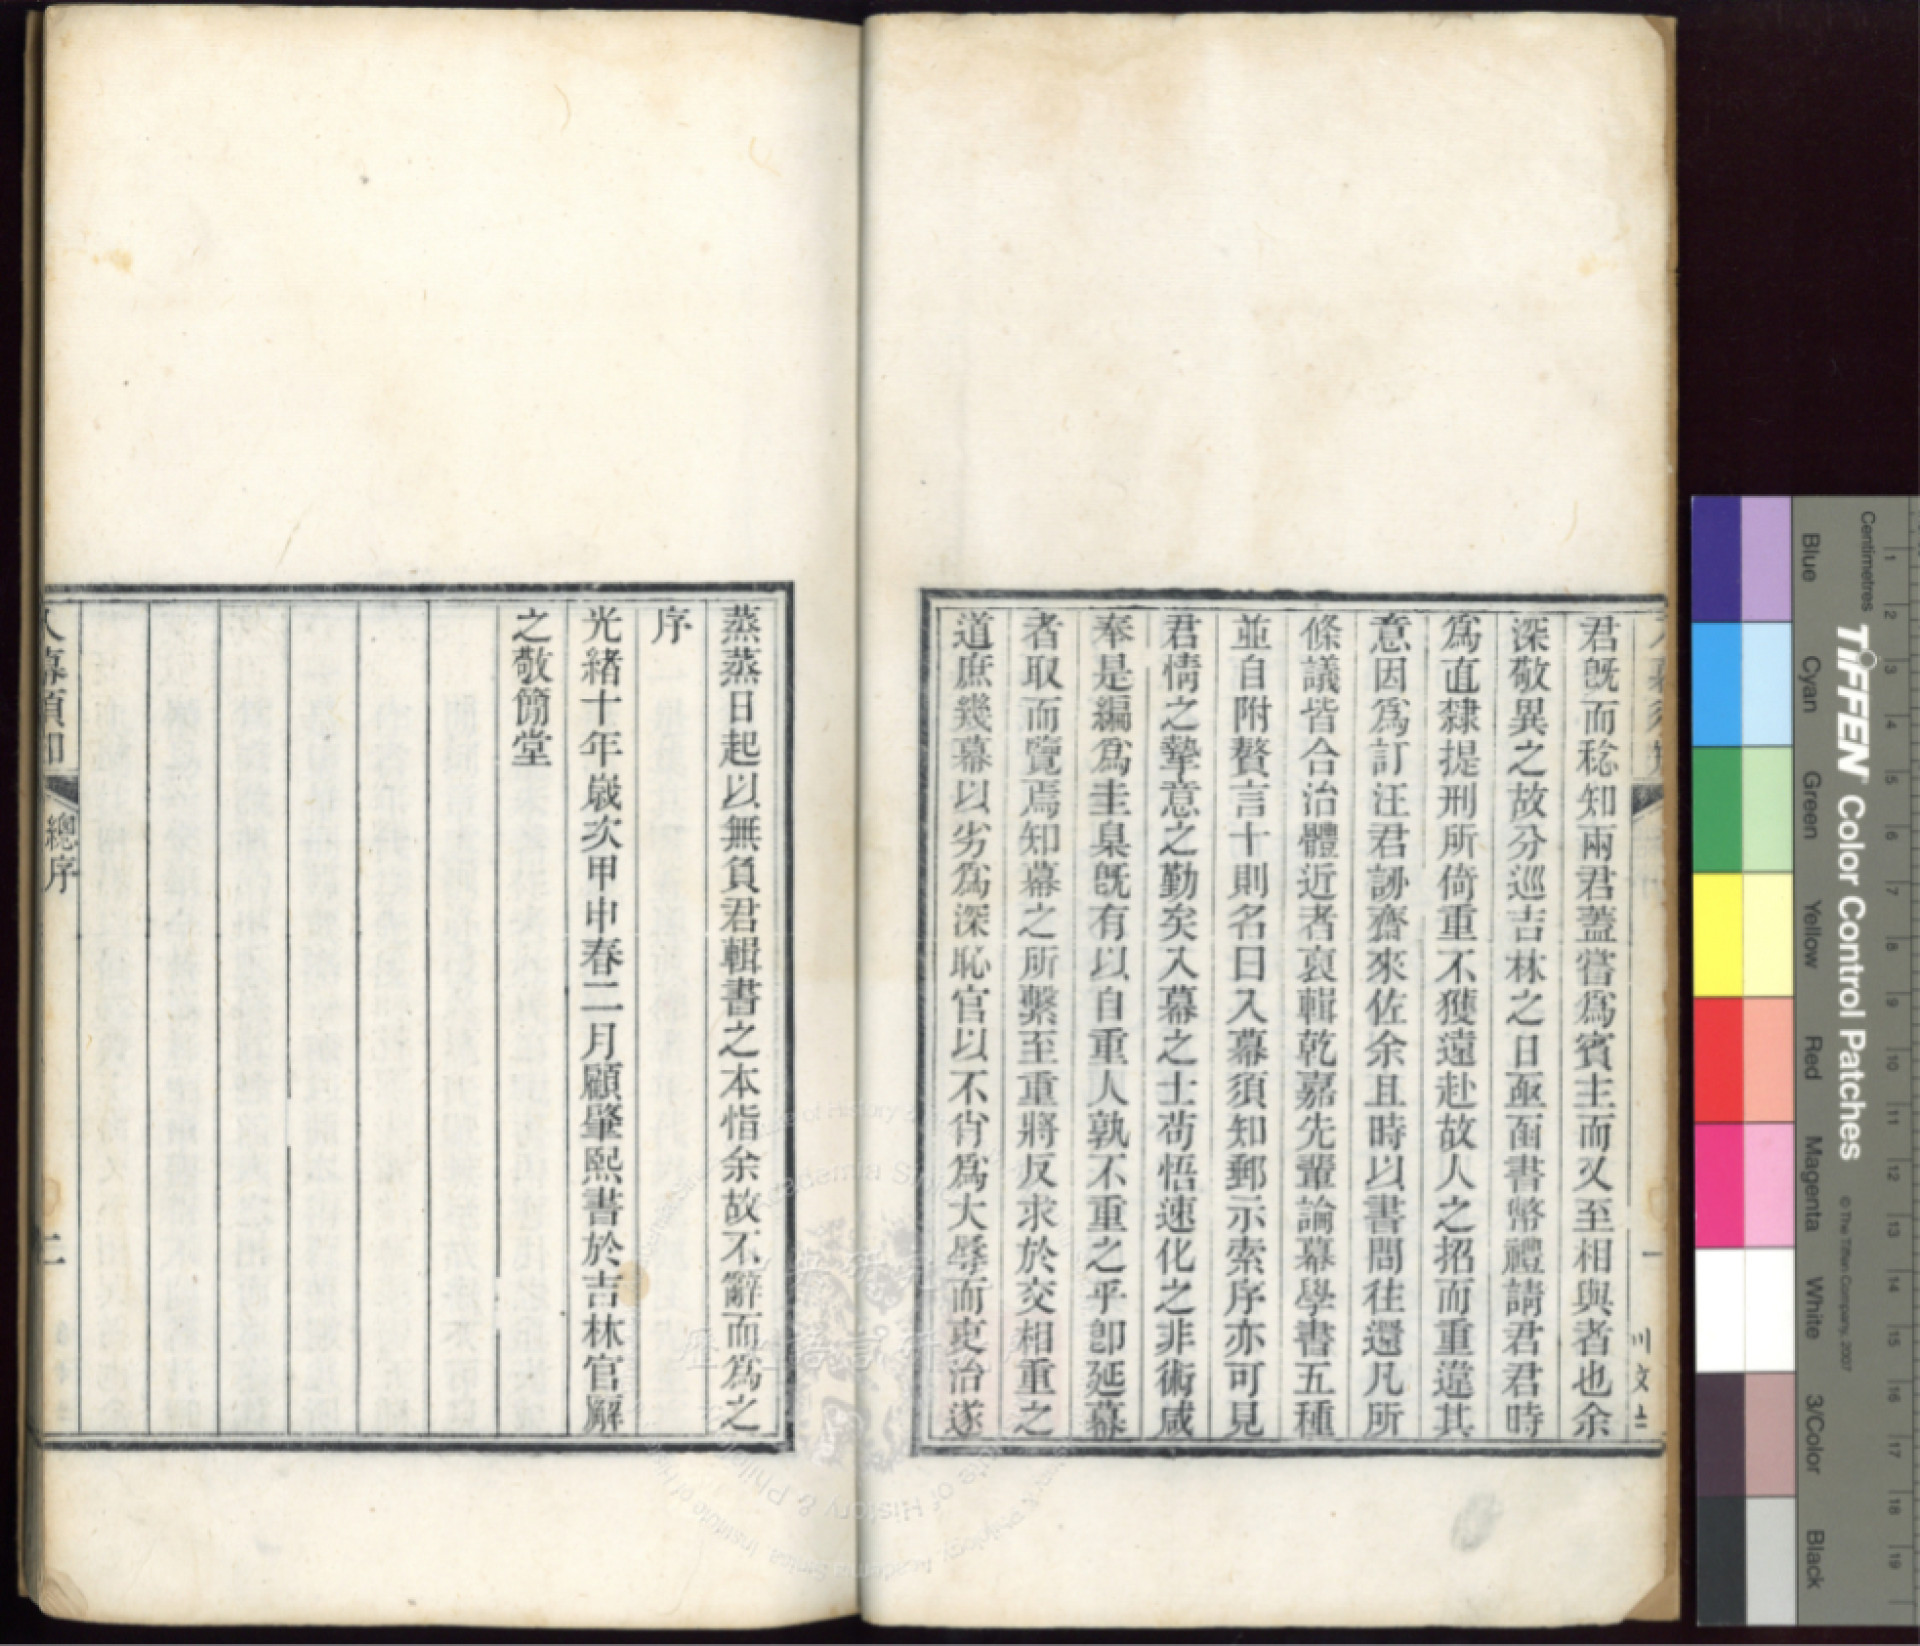 君既而稔知兩君蓋嘗爲賓主而又至相與者也余
深敬異之故分巡吉林之日亟亟圅書幣禮請君君時
爲直隸提刑所倚重不獲遠赴故人之招而重違其
意因爲訂汪君謝齋來佐余且時以書問往還凡所
條議皆合治體近者裒輯乾嘉先輩論幕學書五種
並自附贅言十則名曰入幕須知郵示索序亦可見
君情之摯意之勤矣入幕之士苟悟速化之非術咸
奉是編爲圭臬既有以自重人孰不重之乎卽延幕
者取而覽焉知幕之所繫至重將反求於交相重之
道庶幾幕以劣爲深恥官以不肖爲大辱而吏治遂
蒸蒸日起以無負君輯書之本恉余故不辭而爲之
序
光緒十年歲次甲申春二月顧肇熙書於吉林官廨
之敬簡堂
入幕須知
總序
二
Centimetres
1 2 3 4 5 6 7 8 9 10 11 12 13 14 15 16 17 18 19
TIFFEN Color Control Patches
© The Tiffen Company, 2007
Blue
Cyan
Green
Yellow
Red
Magenta
White
3/Color
Black